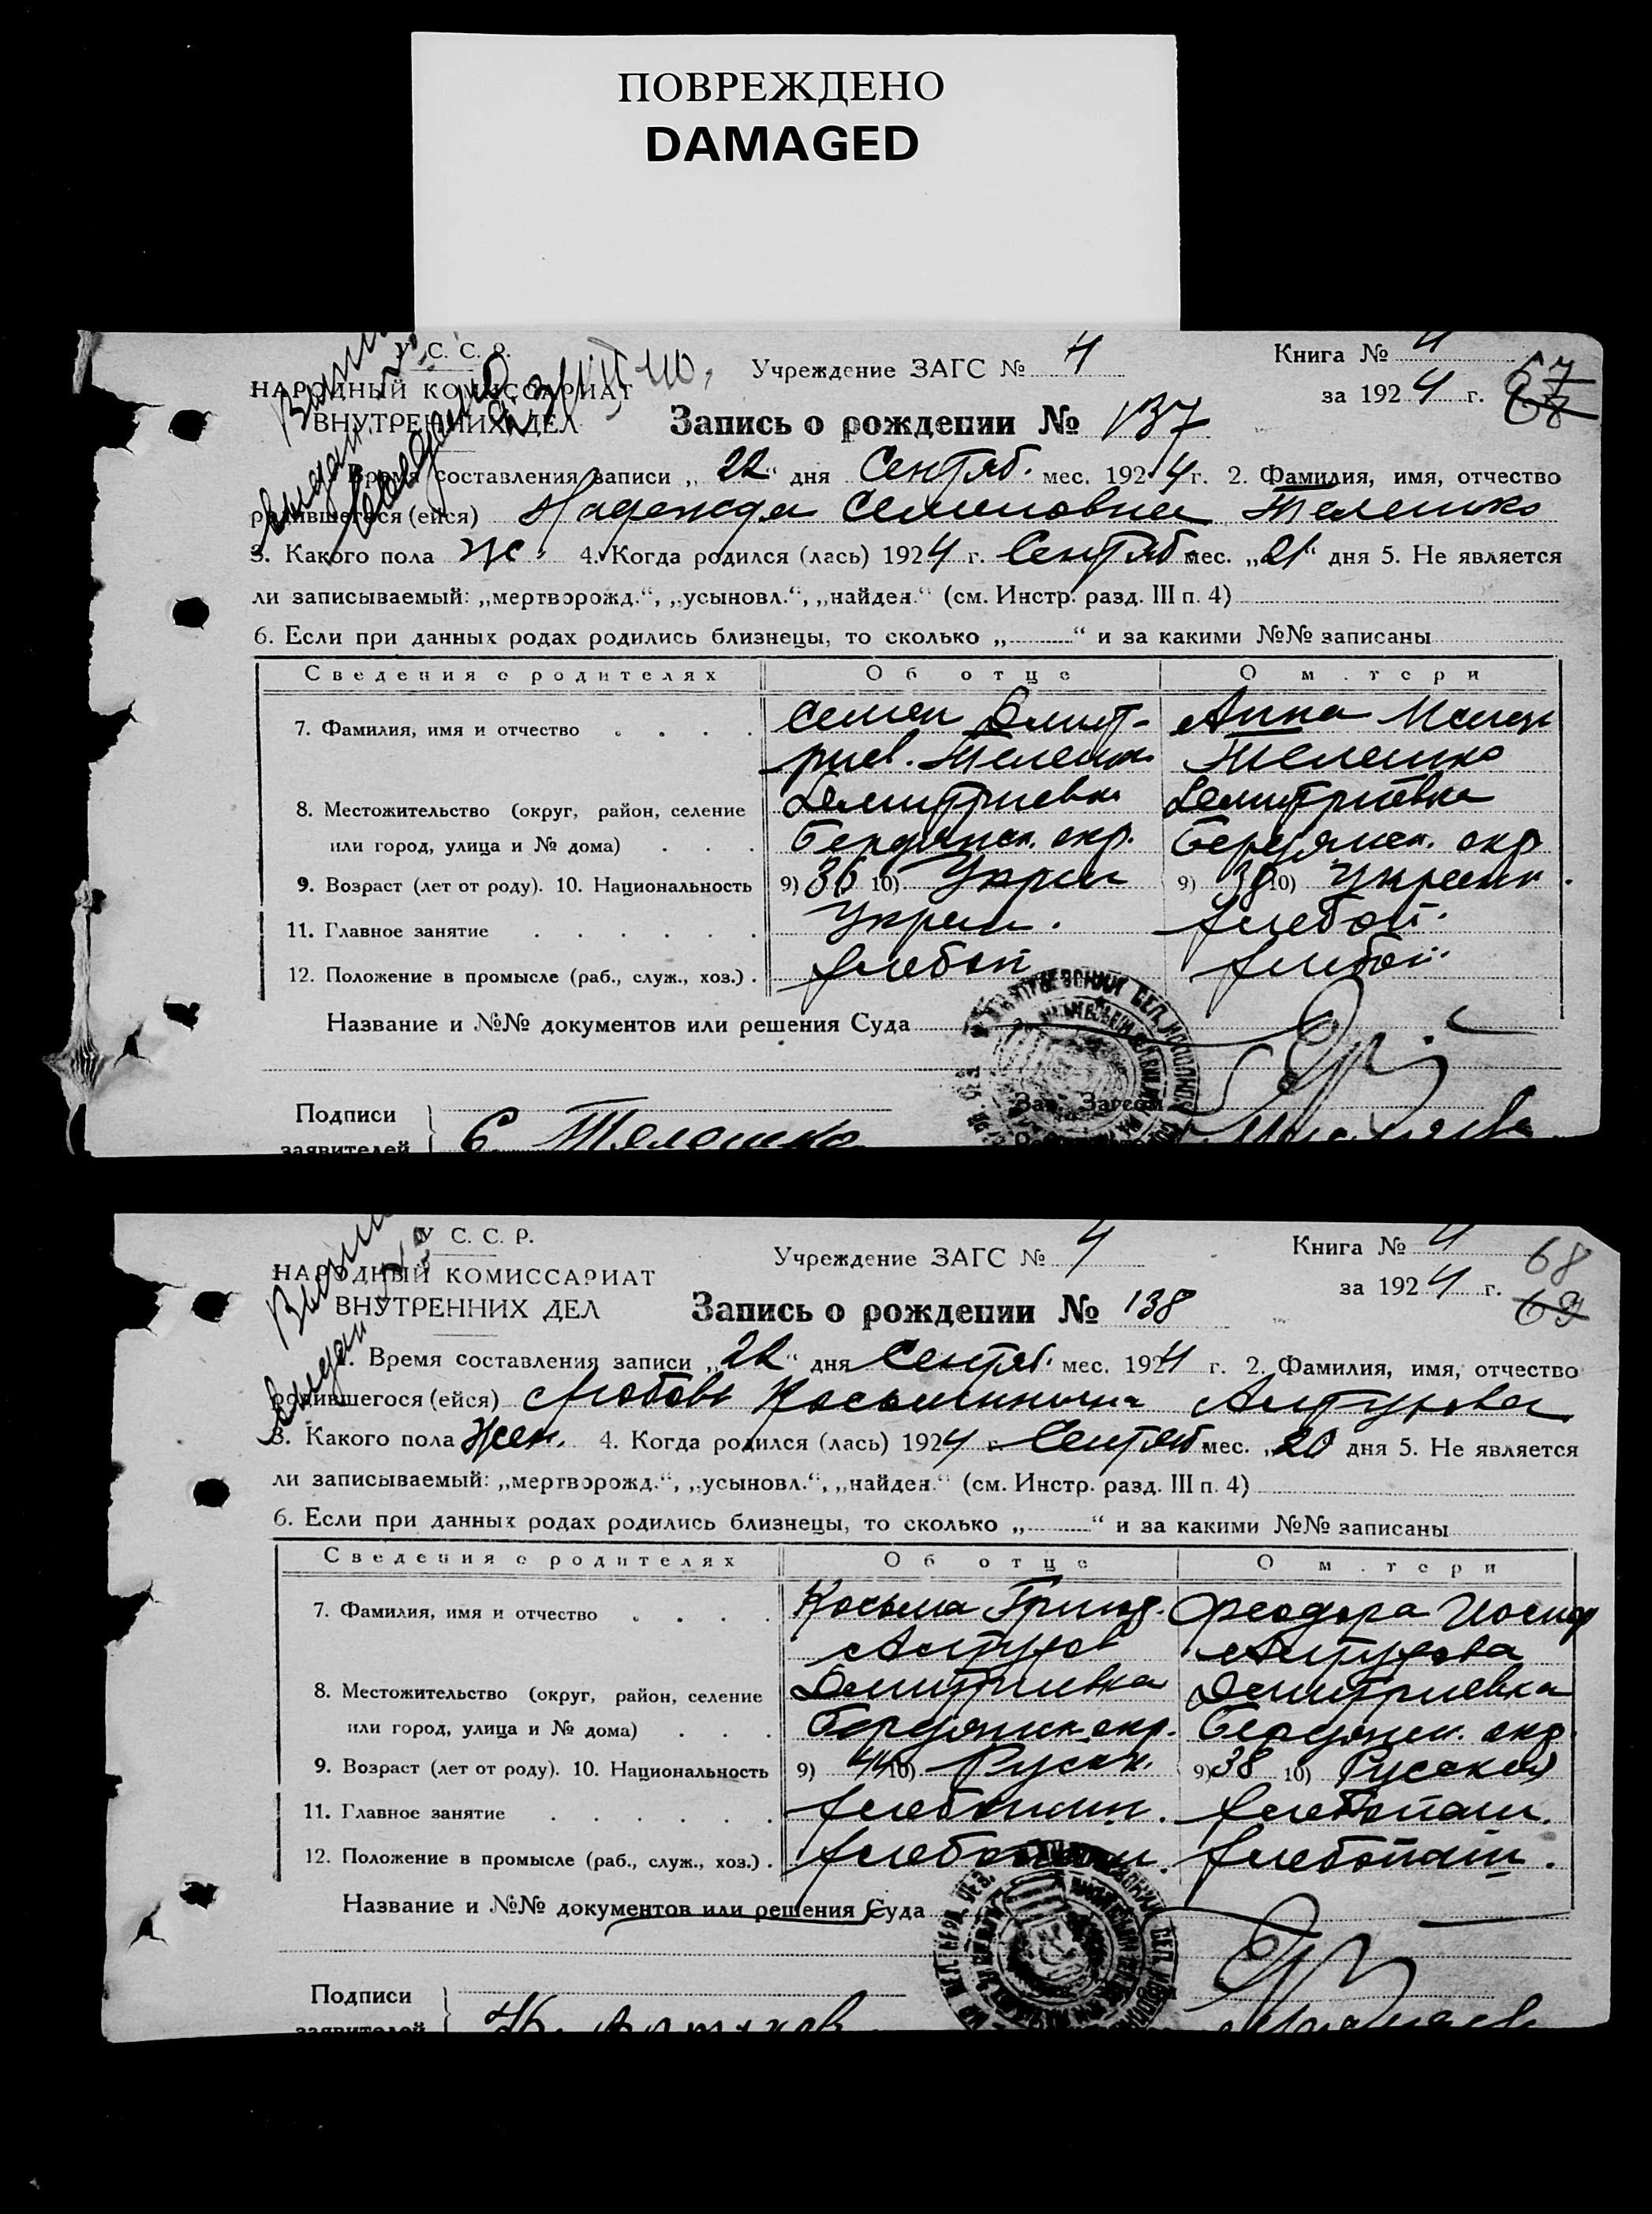 ПОВРЕЖДЕНО
DAMAGED
У. С. С. Р.
НАРОДНЫЙ КОМИССАРИАТ
ВНУТРЕННИХ ДЕЛ
Учреждение ЗАГС № 4
Книга № 4
за 1924 г.
67
68
Запись о рождении № 137
Время составления записи „22“ дня Сентяб. мес. 1924 г. 2. Фамилия, имя, отчество
родившегося (ейся) Надежда Семеновна Телешко
3. Какого пола ж. 4. Когда родился (лась) 1924 г. Сентяб мес. „21“ дня 5. Не является
ли записываемый: „мертворожд.“, „усыновл.“, „найден.“ (см. Инстр. разд. III п. 4)
6. Если при данных родах родились близнецы, то сколько „ “ и за какими №№ записаны
Сведения о родителях Об отце О м.тери
7. Фамилия, имя и отчество Семен Дмит- Анна
риев. Телешко Телешко
8. Местожительство (округ, район, селение Дмитриевка Дмитриевка
или город, улица и № дома) Бердянск. окр. Бердянск. окр
9. Возраст (лет от роду). 10. Национальность 9) 36 10) Украин 9) 38 10) Украинк.
11. Главное занятие Украин. хлебоп.
12. Положение в промысле (раб., служ., хоз.) хлебоп хлебоп.
Название и №№ документов или решения Суда
Зав. Загсом
Подписи
заявителей С. Телешко
У С. С. Р.
НАРОДНЫЙ КОМИССАРИАТ
ВНУТРЕННИХ ДЕЛ
Учреждение ЗАГС № 4
Книга № 4
за 1924 г.
68
69
Запись о рождении № 138
1. Время составления записи „22“ дня Сентяб. мес. 1924 г. 2. Фамилия, имя, отчество
родившегося (ейся) Любовь Косьминична Алтухова
3. Какого пола Жен. 4. Когда родился (лась) 1924 г. Сентяб мес. „20 дня 5. Не является
ли записываемый: „мертворожд.“, „усыновл.“, „найден.“ (см. Инстр. разд. III п. 4)
6. Если при данных родах родились близнецы, то сколько „ “ и за какими №№ записаны
Сведения о родителях Об отце О м.тери
7. Фамилия, имя и отчество Косьма Григор. Феодора Иосиф
Алтухов Алтухова
8. Местожительство (округ, район, селение Дмитриевка Дмитриевка
или город, улица и № дома) Бердянск. окр. Бердянск. окр.
9. Возраст (лет от роду). 10. Национальность 9) 44 10) Русск. 9) 38 10) Русская
11. Главное занятие хлебопаш. хлебопаш.
12. Положение в промысле (раб., служ., хоз.) хлебопаш. хлебопаш.
Название и №№ документов или решения Суда
Подписи
заявителей К. Алтухов